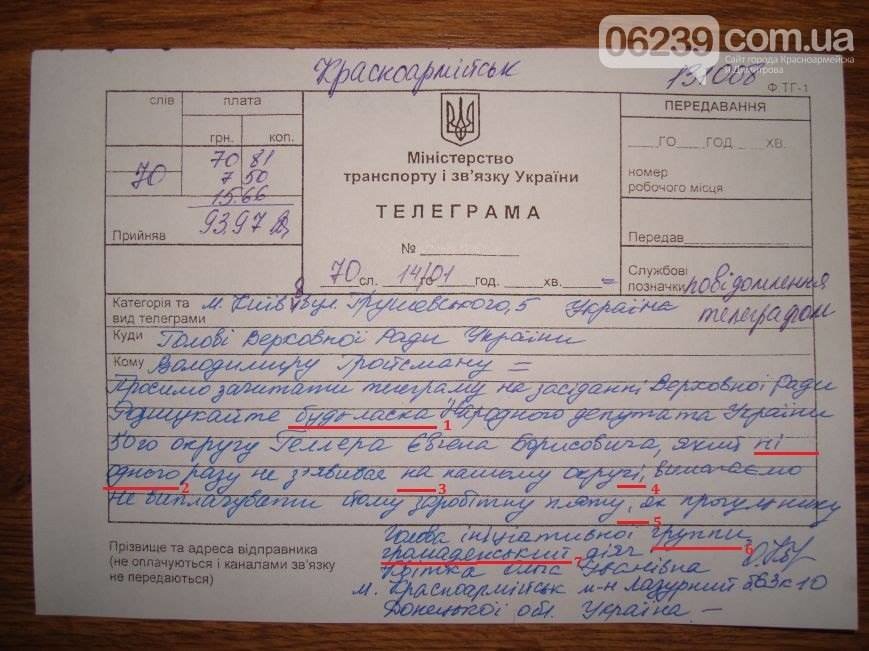 06239.com.ua
Сайт города Красноармейска
и Димитрова
Красноармійськ
131006
Ф.ТГ-1
слів
плата
грн. коп.
70 81
70
7 50
15.66
93.97
Прийняв
Міністерство
транспорту і зв'язку України
ТЕЛЕГРАМА
№
70 сл. 14/01 го год. хв.
ПЕРЕДАВАННЯ
ГО ГОД ХВ.
номер
робочого місця
Передав
Службові
позначки
повідомлення
телеграфом
Категорія та
вид телеграми
м. Київ вул. Грушевського, 5 Україна
Куди Голові Верховної Ради України
Кому Володимиру Гройсману =
Просимо зачитати телеграму на засіданні Верховної Ради
Розшукайте будьласка 1 Народного депутата України
50го округу Геллера Євгена Борисовича, який ні
одного 2 разу не з'явився на 3 нашому окрузі, 4 вимагаємо
не виплачувати йому заробітну плату, 5 як прогульнику
Голова ініціативної группи 6
громаденський 7 діяч
Квітка Іванівна
м. Красноармійськ м-н Лазурний б63к10
Донецької обл. Україна —
Прізвище та адреса відправника
(не оплачуються і каналами зв'язку
не передаються)